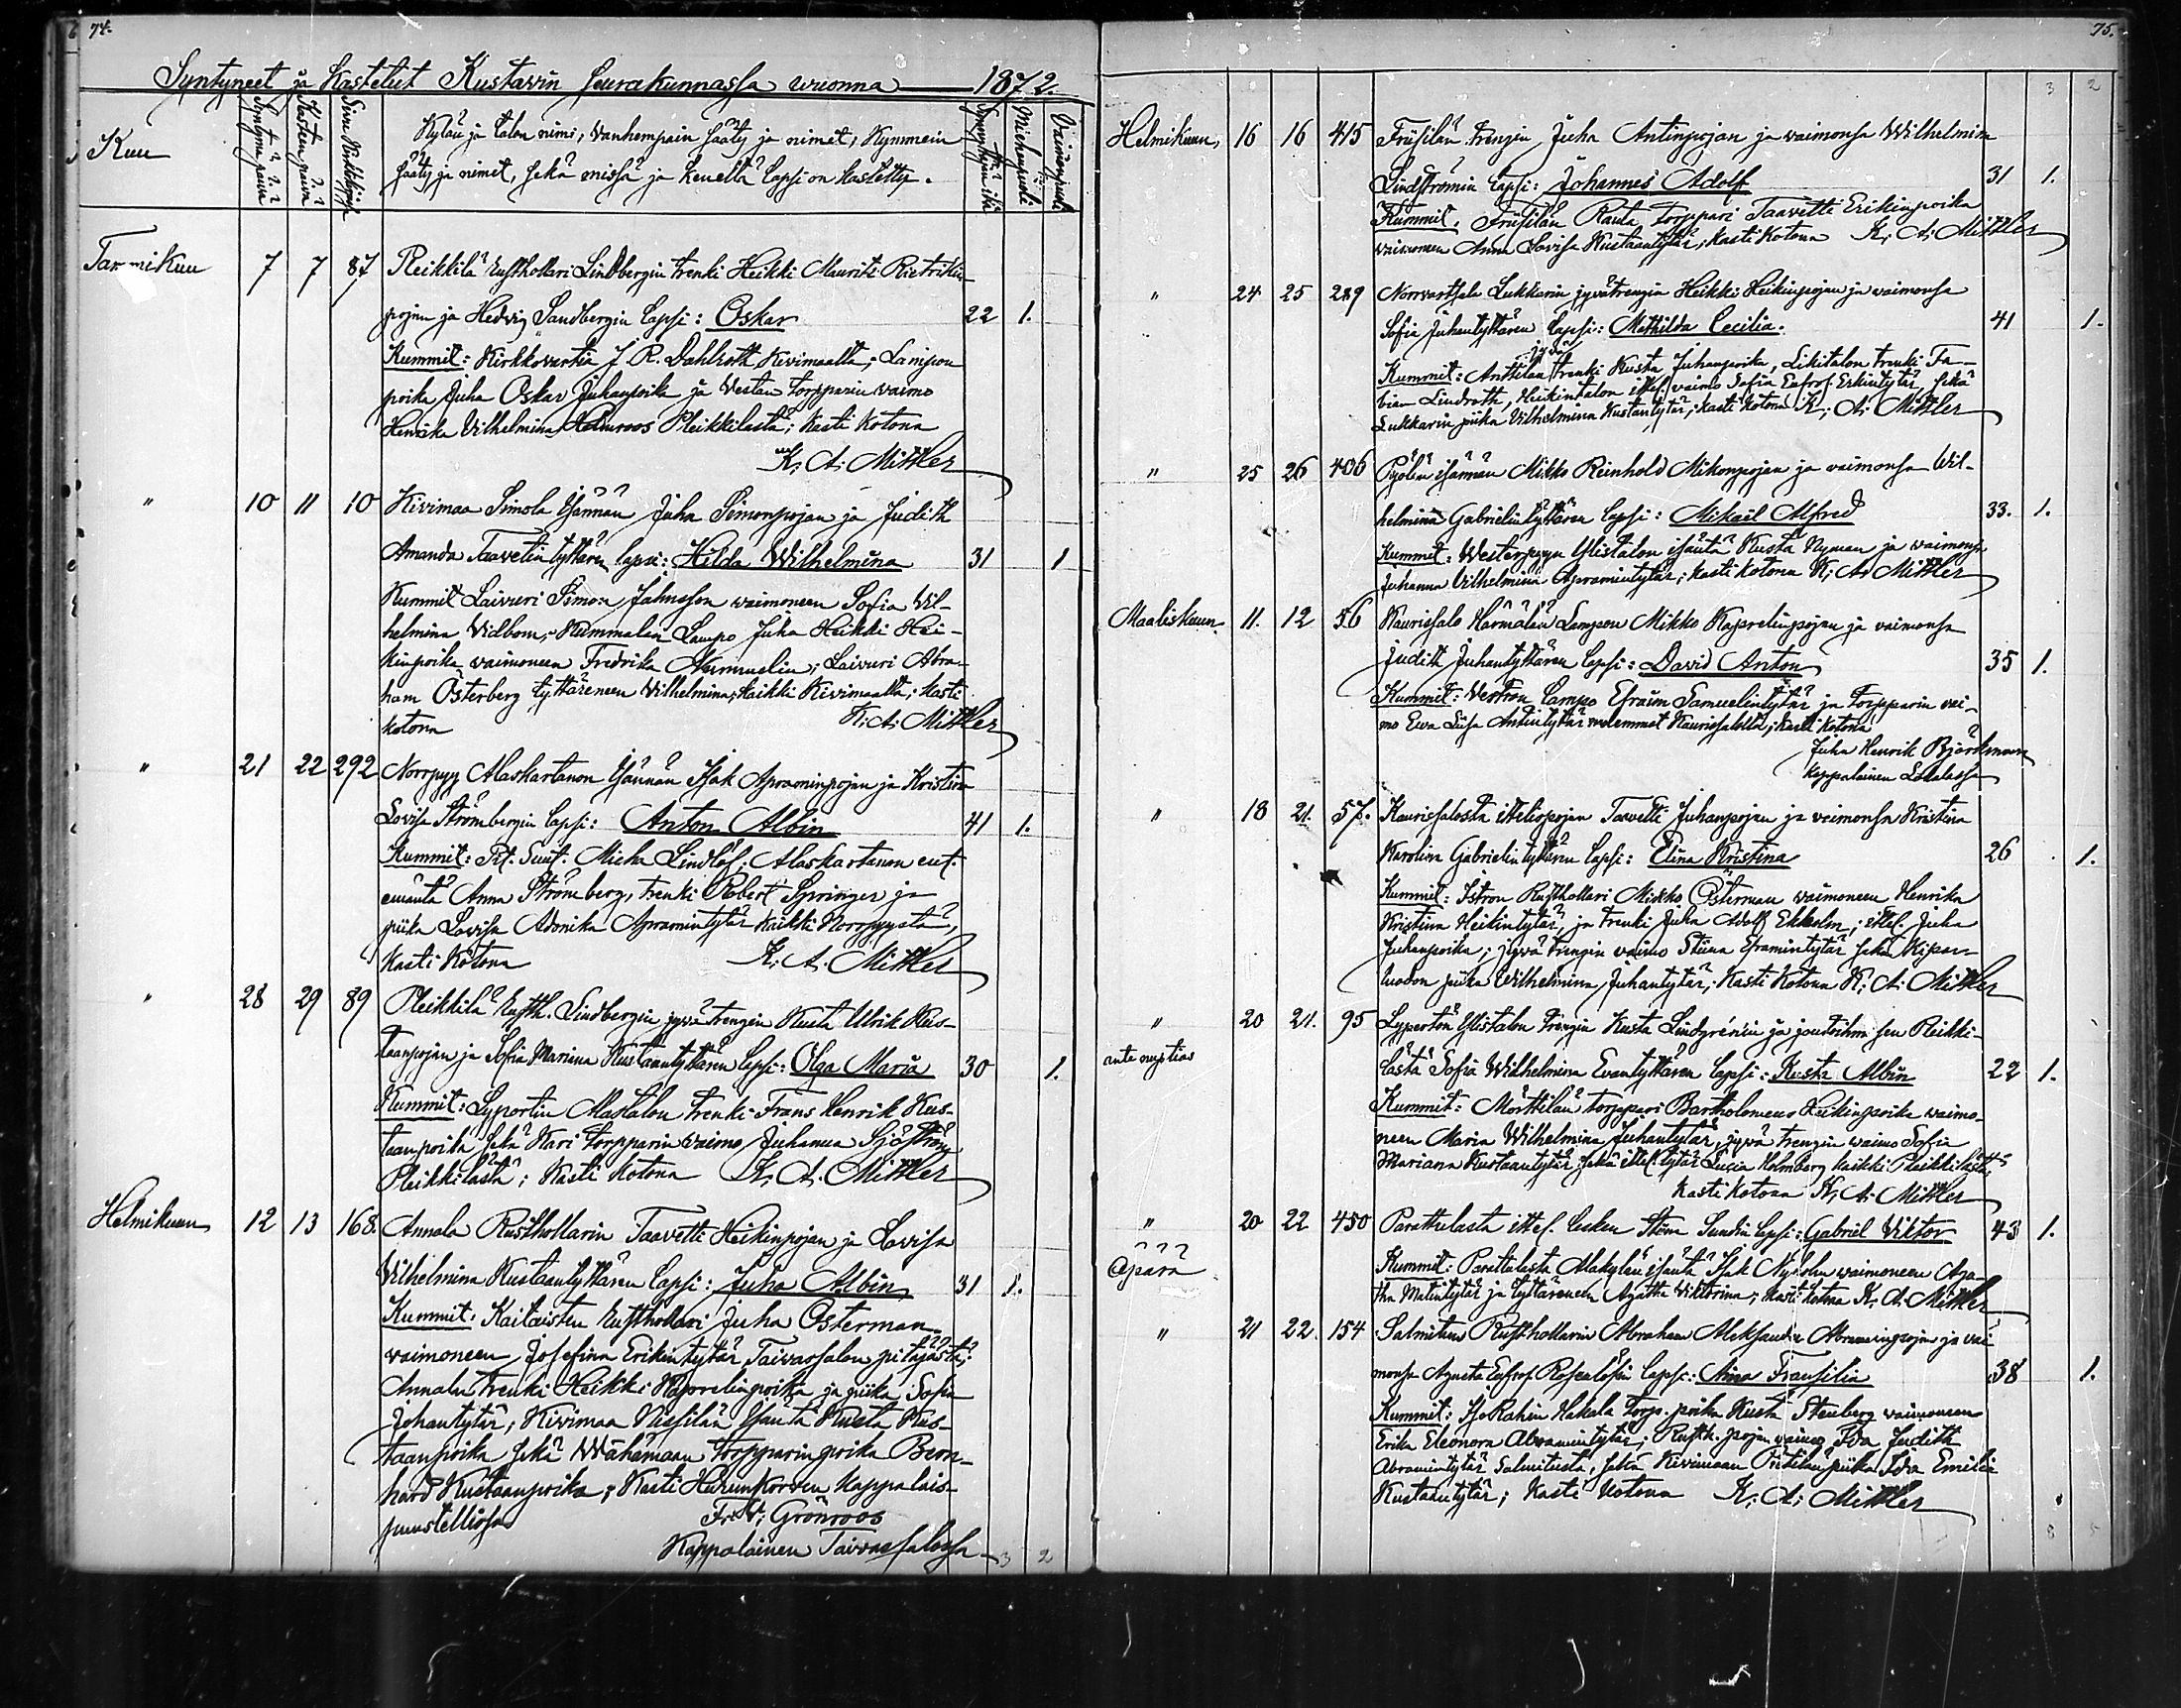 74.
Syntyneet ja Kastetut Kustawin seurakunnassa wuonna 1872.
Kuu
Syntymä päivä
Kasteen päivä
Sivu Kirkkokirjassa
Kylän ja talon nimi, vanhempain sääty ja nimet, Kummein
sääty ja nimet, sekä missä ja keneltä lapsi on kastettu.
Synnyttäjän ikä
Miehenpuoli
Vaimonpuoli
Tammikuu 7 7 87 Pleikkilä Rusthollari Lindbergin trenki Heikki Maurits Rietrikin
pojan ja Hedvig Sandbergin lapsi: Oskar 22 1.
Kummit: Kirkkovartia J. R. Dahlroth Kivimaalta; Lampon
poika Juha Oskar Juhanpoika ja Vestan torpparin vaimo
Henrika Vilhelmina Holmroos Pleikkilästä; Kasti Kotona
K. A. Mittler
" 10 11 10 Kivimaa Simola Isännän Juha Simonpojan ja Judith
Amanda Taavetin tyttären lapsi: Hilda Wilhelmina 31 1
Kummit Laivuri Simon Johnsson waimoneen Sofia Vil-
helmina Vidbom; Nummalin Lampo Juha Heikki Hei-
kinpoika waimoneen Fredrika Nummelin; Laivuri Abra-
ham Österberg tyttäreneen Vilhelmina; kaikki Kivimaalta; Kasti
kotona K. A. Mittler
" 21 22 292 Norrpyy Alaskartanon Isännän Isak Apraminpojan ja Kristina
Lovisa Strömbergin lapsi: Anton Albin 41 1.
Kummit: Pit. Suut. Micha Lindlöf; Alaskartanon ent.
emäntä Anna Strömberg, trenki Robert Springer ja
piika Lovisa Adonika Apramintytär kaikki Norrpyystä,
Kasti Kotona K. A. Mittler
" 28 29 89 Pleikkilä Rusth. Lindbergin jyvä trengin Kusta Ulrik Kus-
taanpojan ja Sofia Mariana Kustaantyttären lapsi: Olga Maria 30 1.
Kummit: Lypertin Alastalon trenki Frans Henrik Kus-
taanpoika sekä Kari torpparin vaimo Juhanna Sjöström
Pleikkilästä; Kasti kotona K. A. Mittler
Helmikuun 12 13 168. Annala Rusthollarin Taavetti Heikinpojan ja Lovisa
Vilhelmina Kustaantyttären lapsi: Juha Albin 31 1.
Kummit: Kaitaisten Rusthollari Juha Osterman
waimoneen Josefina Erikintytär Taivassalon pitäjästä;
Annalan trenki Heikki Kaprelinpoika ja piika Sofia
Johantytär; Kivimaa Nissilän Isäntä Kusta Kus-
taanpoika sekä Wähämaan torpparinpoika Bern-
hard Kustaanpoika; Kasti Kappalais-
Grönroos
Kappalainen Taivassalossa
3 2
75.
3 2
Helmikuun 16 16 415 Friisilän trengin Juha Antinpojan ja waimonsa Wilhelmina
Lindströmin lapsi: Johannes Adolf 31 1.
Kummit: Friisilän Ranta torppari Taavetti Erikinpoika
vaimoneen Anna Lovisa Kustaantytär; Kasti Kotona K. A. Mittler
" 24 25 289 Norrvartsala Lukkarin jyvätrengin Heikki Heikinpojan ja waimonsa
Sofia Juhantyttären lapsi: Mathilda Cecilia. 41 1.
jyvä
Kummit: Anttilan trenki Kusta Juhanpoika, Likitalon trenki Fa-
bian Lindroth, Heikintalon ittel. vaimo Sofia Eufros. Erkintytär, sekä
Lukkarin piika Vilhelmina Kustantytär; Kasti Kotona K. A. Mittler
" 25 26 406 isännän Mikko Reinhold Mikonpojan ja vaimonsa Wil-
helmina Gabrielintyttären lapsi: Mikael Alfred 33. 1.
Kummit: Westerpyyn Ylistalon isäntä Kusta Nyman ja waimonsa
Juhanna Vilhelmina Apramintytär; Kasti Kotona K. A. Mittler
Maaliskuun 11. 12 56 Kaurissalo Härmälän Lampon Mikko Kaprelinpojan ja vaimonsa
Judith Juhantyttären lapsi: David Anton 35 1.
Kummit: Lampo Efraim Samuelintytär ja torpparin vai-
mo Ewa Liisa Antintytär molemmat Kaurissalosta; Kasti Kotona
Juha Henrik Björkman
Kappalainen Lokalassa
" 18 21. 57. Kaurissalosta itteliopojan Taavetti Juhanpojan ja vaimonsa Kristina
Karolina Gabrielintyttären lapsi: Elina Kristina 26 1.
Kummit: Iströn Rusthollari Mikko Österman vaimoneen Henrika
Kristina Heikintytär, ja trenki Juha Adolf Ekholm; ittel. Juha
Juhanpoika; jyvä trengin vaimo Stiina Eframintytär sekä Kipar-
luodon piika Wilhelmina Juhantytär; Kasti Kotona K. A. Mittler
" 20 21. 95 Lypertön Ylistalon trengin Kusta Lindgrénin ja Pleikki-
ante nuptias
lästä Sofia Wilhelmina Evantyttären lapsi: Kusta Albin 22 1.
Kummit: Mörttilän torppari Bartholomeus Heikinpoika waimo-
neen Maria Wilhelmina Juhantytär, jyvä trengin waimo Sofia
Mariana Kustaantytär sekä ittel. tytär Lucia Holmberg kaikki Pleikkilästä;
Kasti Kotona K. A. Mittler
" 20 22 450 Parattulasta ittel. lesken Stina Sundin lapsi: Gabriel Viktor 43 1.
Äpärä
Kummit: Parattulasta Alakylän isäntä Isak Nyholm waimoneen Aga-
tha Matintytär ja tyttäreneen Agatha Viktorina; Kasti kotona K. A. Mittler
" 21 22. 154 Salmitun Rusthollarin Abraham Aleksander Abraminpojan ja vai
monsa Agneta Eufros. lapsi: Aina Fransilia 38 1.
Kummit: Hakala torp. poika Kusta Stenberg waimoneen
Erika Eleonora Abramintytär; Rusth. pojan vaimo Ida Judith
Abramintytär Salmitusta, sekä Kivimaan Prikilän piika Ida Emilia
Kustaantytär; Kasti Kotona K. A. Mittler
8 5